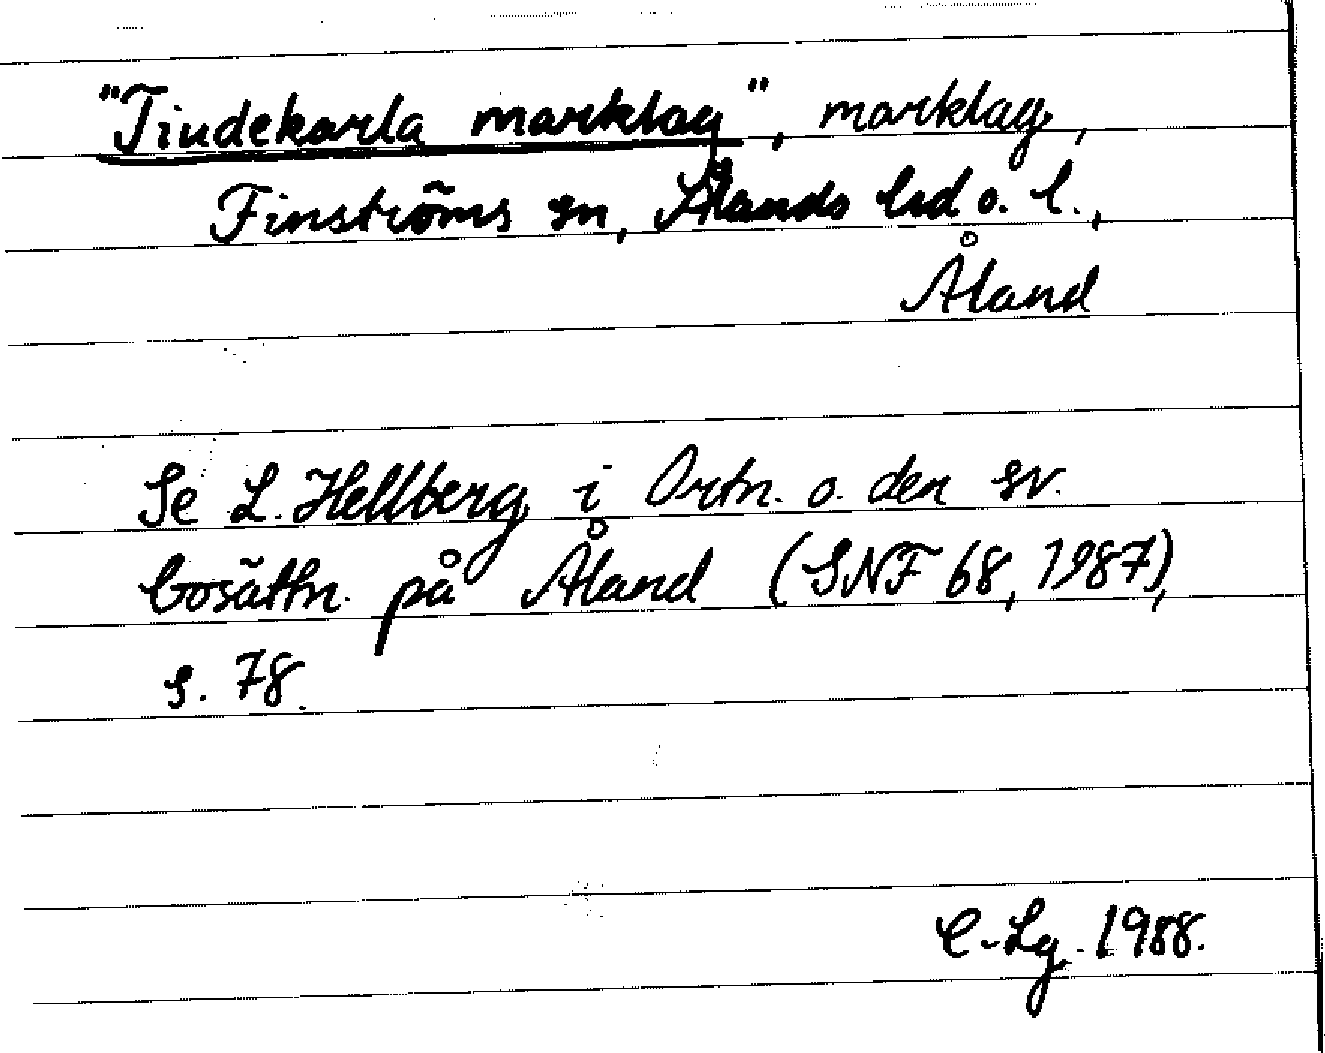 "Tiudekarla marklag", marklag,
Finströms sn, Ålands hd o. l.,
Åland
Se L. Hellberg i Ortn. o. den sv.
bosättn. på Åland (SNF 68, 1987),
s. 78.
C-Lg. 1988.